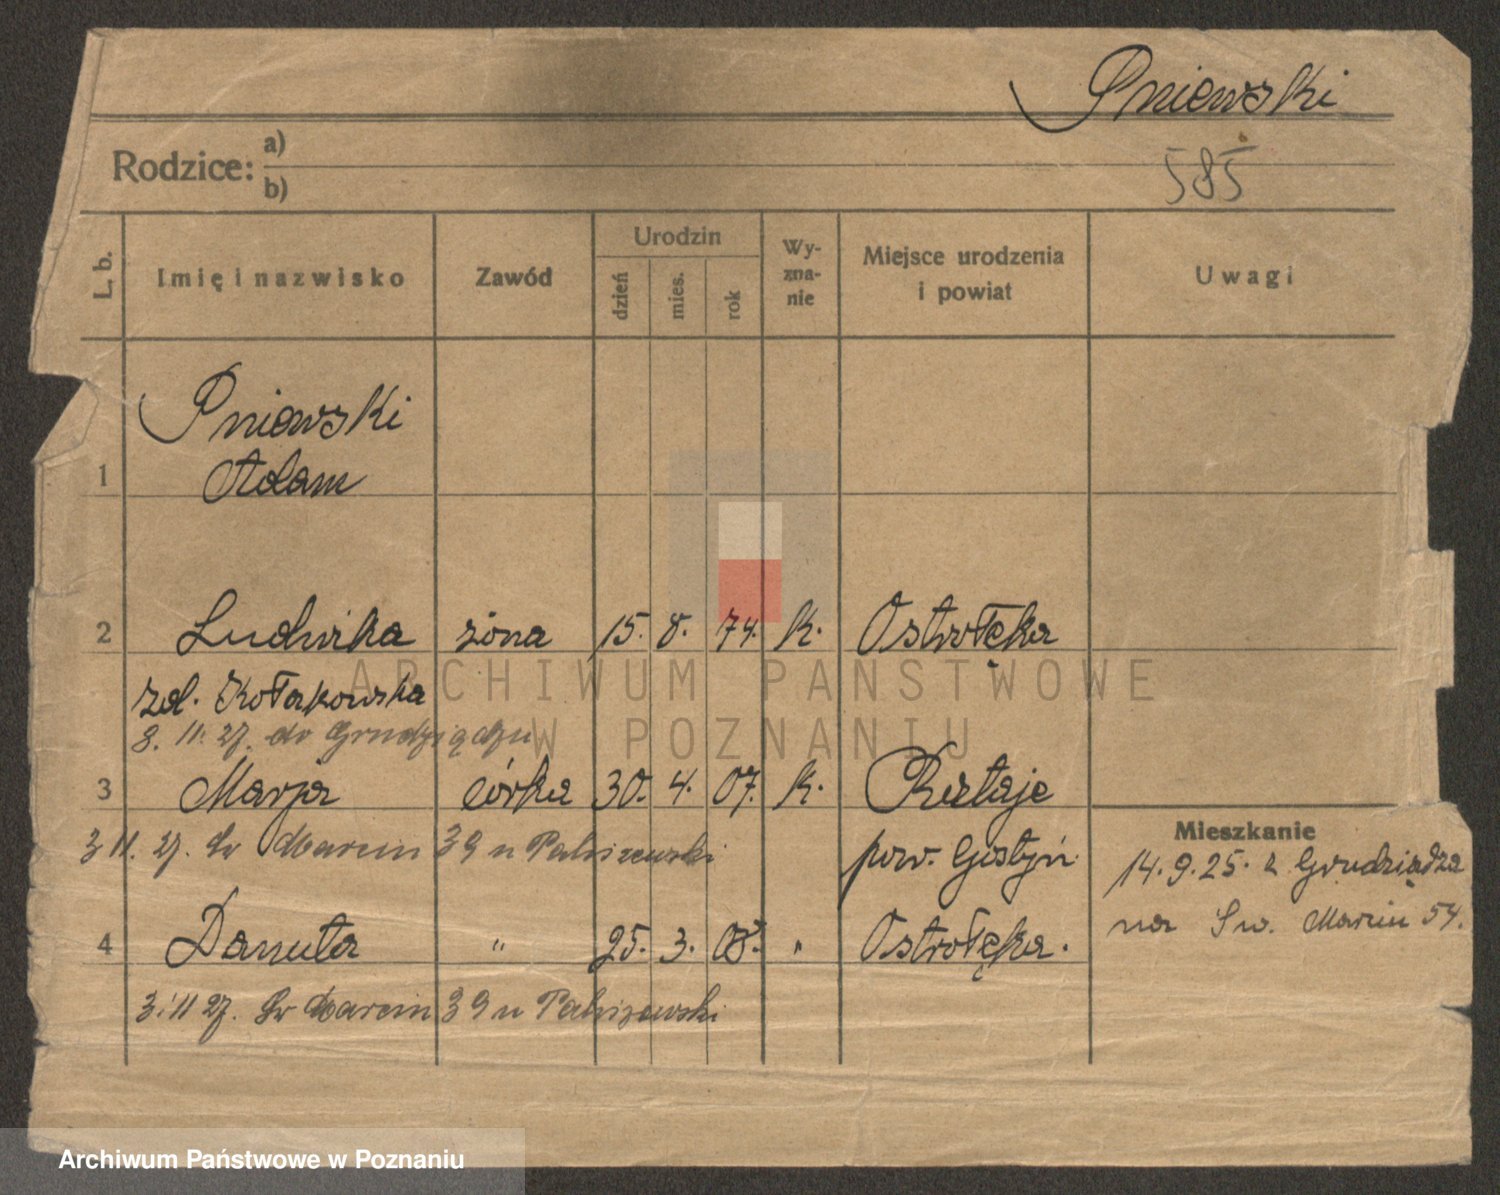 Pniewski
Rodzice: a)
b)
585
L. b. Imię i nazwisko Zawód Urodzin dzień mies. rok Wyznanie Miejsce urodzenia i powiat Uwagi
Pniewski
1 Adam
2 Ludwika żona 15. 8. 74. K. Ostrołęka
zd. Kołakowska
3. 11. 27. do Grudziądzu
3 Marja córka 30. 4. 07. K. Rataje
3 11. 27. Św Marcin 39 u
pow. Gostyń
Mieszkanie
14.9.25. z Grudziądza
na Św. Marcin 54.
4 Danuta " 25. 3. 08. " Ostrołęka.
3. 11 27. Św Marcin 39 u
ARCHIWUM PAŃSTWOWE
W POZNANIU
Archiwum Państwowe w Poznaniu